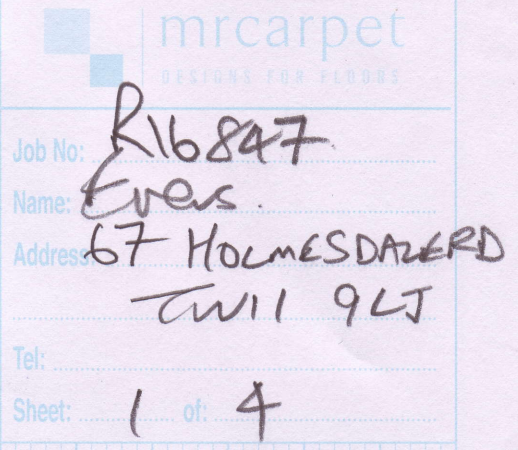 mrcarpet
DESIGNS FOR FLOORS
Job No: R16847
Name: Evers.
Address: 67 HOLMESDALE RD
TW11 9LJ
Tel:
Sheet: 1 of: 4